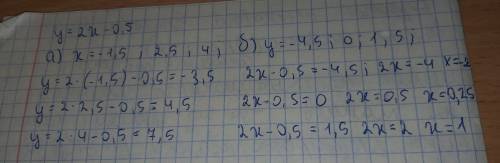 y=2x-0,5
а) x=-1,5 ; 2,5 ; 4 ; б) y=-4,5 ; 0 ; 1,5 ;
y=2·(-1,5)-0,5=-3,5 2x-0,5=-4,5; 2x=-4 x=-2
y=2·2,5-0,5=4,5 2x-0,5=0 2x=0,5 x=0,25
y=2·4-0,5=7,5 2x-0,5=1,5 2x=2 x=1